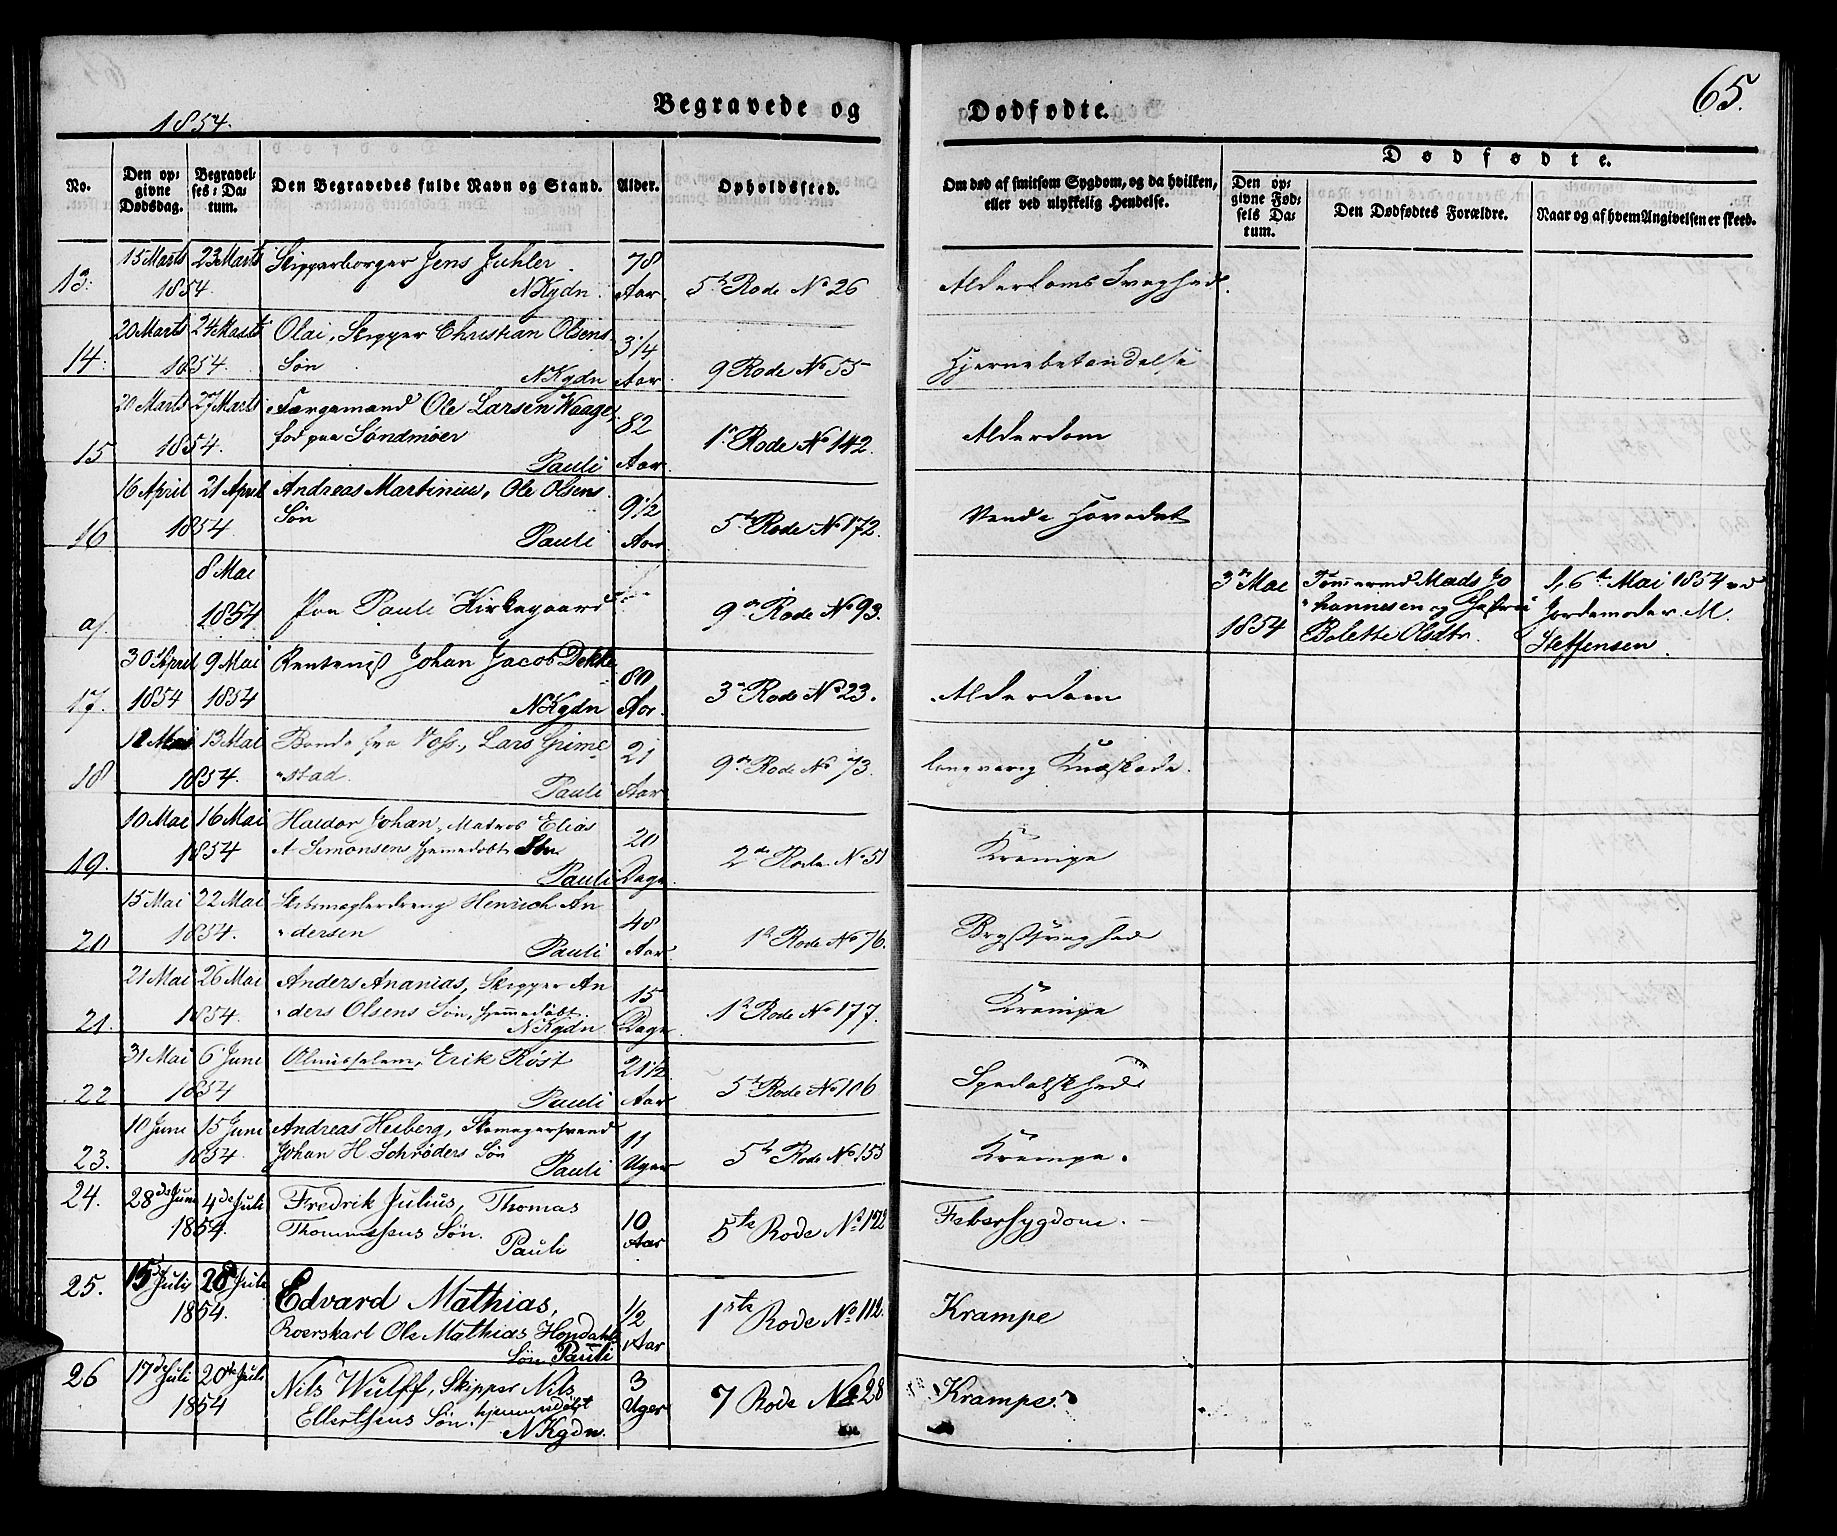 1854.
Begravede og
Dødfødte.
65.
No.
Den opgivne Dødsdag.
Begravelses-Datum.
Den Begravedes fulde Navn og Stand.
Alder.
Opholdssted.
Om død af smitsom Sygdom, og da hvilken, eller ved ulykkelig Hendelse.
Dødfødte.
Den opgivne Fødsels Datum.
Den Dødfødtes Forældre.
Naar og af hvem Angivelsen er skeed.
13. 15 Marts 23 Marts Skipperborger Jens Juhler 78
1854. NKgdn. Aar 5te Rode No 26 Alderdoms Svaghed.
20 Marts 24 Marts Olai, Skipper Christian Olsens 3/4
14. 1854. Søn NKgdn Aar. 9 Rode No 55 Hjernebetændelse
20 Marts 27 Marts Færgemand Ole Larsen Waage, 82
15 1854. fød paa Søndmøer
Pauli Aar. 1ste Rode No 142. Alderdom
16 April 21 April Andreas Martinius, Ole Olsens 9 1/2
16 1854 Søn
Pauli Aar 5te Rode No 172. Vand i Hovedet
8 Mai
a/. 1854 Paa Pauli Kirkegaard 9de Rode No 93.
3de Mai Tømmermd Mads Jo d. 6te Mai 1854 ved
hannesen og Jordemoder M.
1854 Bolette Olsdtr. Steffensen.
30 April 9 Mai Rentenist Johan Jacob Dekke 80
17. 1854 1854 NKgdn Aar. 3de Rode No 23. Alderdom
12 Mai 13 Mai Bonde fra Voss, Lars Grime 21
18 1854. stad. Pauli Aar. 9de Rode No 73. langvarig Knæskade.
10 Mai 16 Mai Haldor Johan, Matros Elias 20
19. 1854 A Simonsens hjemmedøbt Søn
Pauli Dage. 2den Rode No 51 Krampe
15 Mai 22 Mai Henrich An 48
20 1854. dersen Pauli Aar. 1ste Rode No 76. Brystsvaghed
21 Mai 26 Mai Anders Ananias, Skipper An 15
21. 1854. ders Olsens Søn, hjemmedøbt.
NKgdn Dage. 1ste Rode No 177. Krampe
31 Mai 6 Juni Almisselem, Erik Røst 21 1/2
22 1854 Pauli Aar 5te Rode No 106 Spedalskhed
10 Juni 15 Juni Andreas Hesberg, Skomagersvend 11
23. 1854. Johan H Schrøders Søn
Pauli Uger 5te Rode No 153 Krampe.
24. 28de Juni 4de Juli Fredrik Julius, Thomas 10
1854. Thommesens Søn.
Pauli Aar 5te Rode No 172 Febersygdom.
25. 15 Juli 20 Juli Edvard Mathias, 1/2
1854. Roerskarl Ole Mathias Hondahls
Søn. Pauli Aar 1ste Rode No 112. Krampe
26 17de Juli 20de Juli Nils Wulff, Skipper Nils 3
1854 Ellertsens Søn. hjemmedøbt
NKgdn. Uger 7 Rode No 28 Krampe.